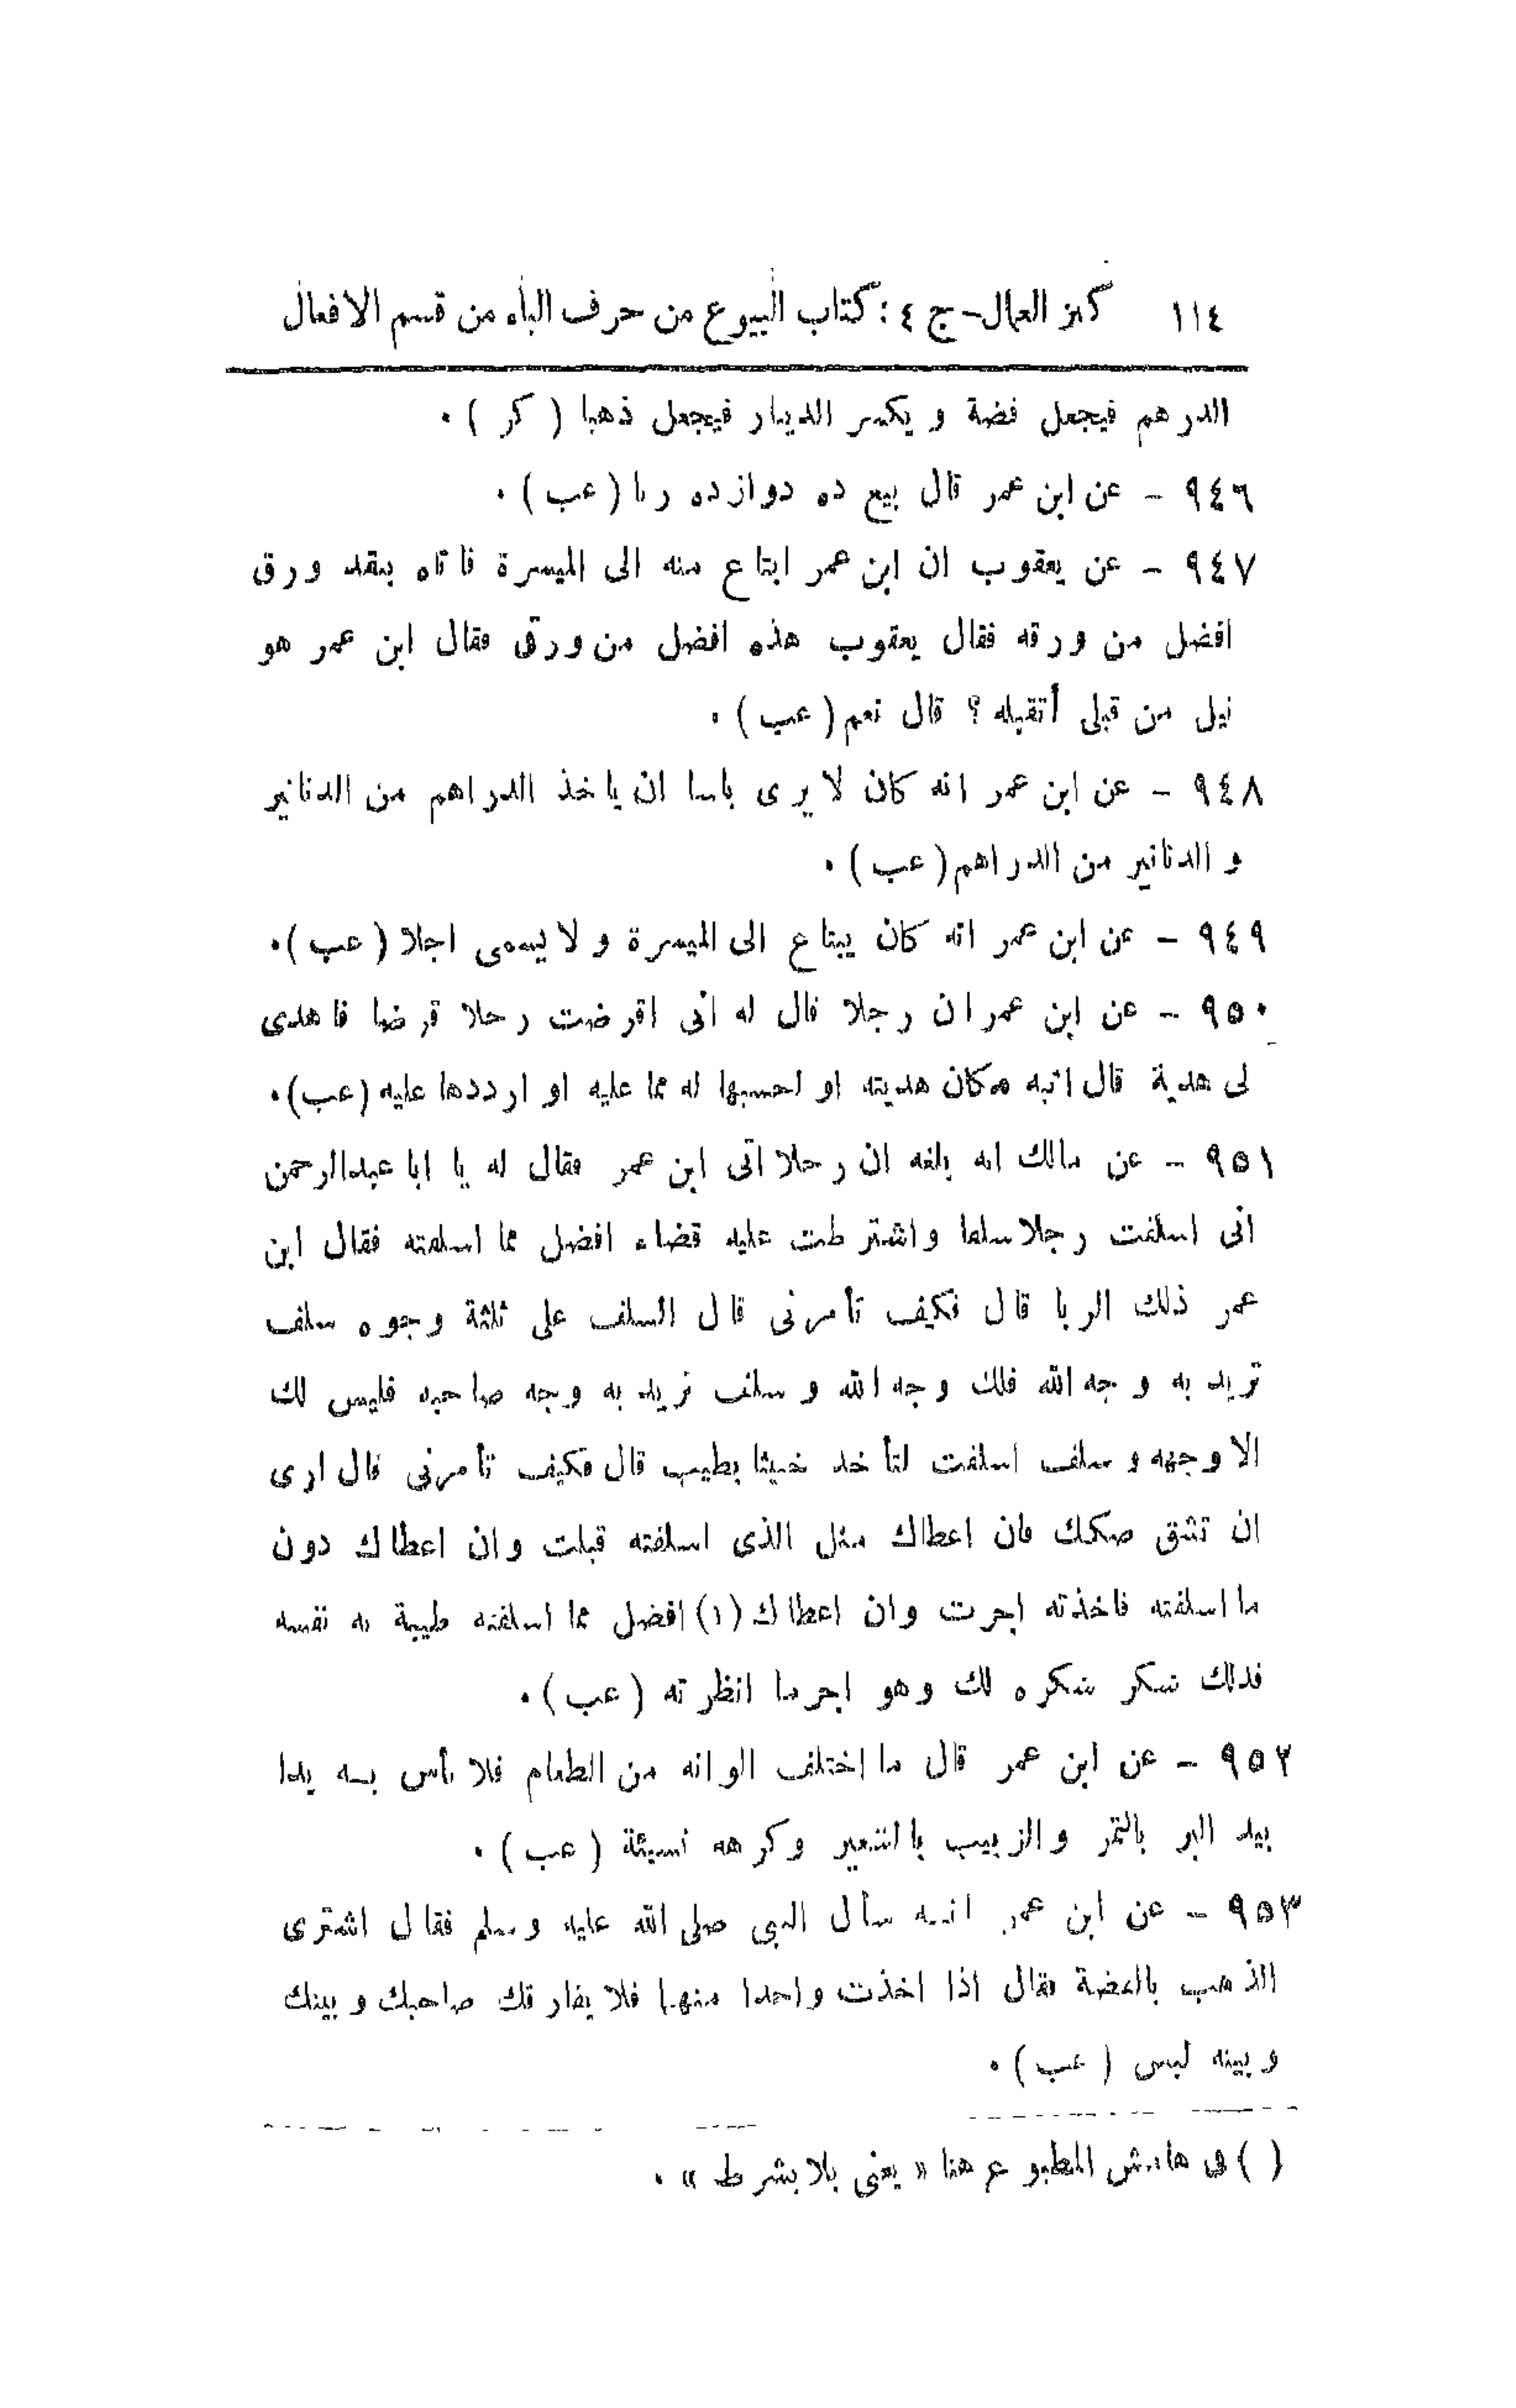 ١١٤ كنز العمال - ج ٤ : كتاب البيوع من حرف الباء من قسم الافعال
الدرهم فيجعل فضة و يكسر الدينار فيجعل ذهبا ( كر ) .
٩٤٦ - عن ابن عمر قال بيع ده دوازده ربا ( عب ) .
٩٤٧ - عن يعقوب ان ابن عمر ابتاع منه الى الميسرة فاتاه بنقد ورق
افضل من ورقه فقال يعقوب هذه افضل من ورقى فقال ابن عمر هو
نيل من قبلى أتقبله ؟ قال نعم ( عب ) .
٩٤٨ - عن ابن عمر انه كان لا يرى باسا ان ياخذ الدراهم من الدنانير
و الدنانير من الدراهم ( عب ) .
٩٤٩ - عن ابن عمر انه كان يبتاع الى الميسرة و لا يسمى اجلا ( عب ) .
٩٥٠ - عن ابن عمر ان رجلا قال له انى اقرضت رجلا قرضا فاهدى
لى هدية قال اثبه مكان هديته او احسبها له مما عليه او ارددها عليه ( عب ) .
٩٥١ - عن مالك انه بلغه ان رجلا اتى ابن عمر فقال له يا ابا عبدالرحمن
انى اسلفت رجلا سلفا واشترطت عليه قضاء افضل مما اسلفته فقال ابن
عمر ذلك الربا قال فكيف تأمرنى قال السلف على ثلثة وجوه سلف
تريد به وجه الله فلك وجه الله و سلف تريد به وجه صاحبه فليس لك
الا وجهه و سلف اسلفت لتأخذ خبيثا بطيب قال فكيف تأمرنى قال ارى
ان تشق صكك فان اعطاك مثل الذى اسلفته قبلت وان اعطاك دون
ما اسلفته فاخذته اجرت وان اعطاك (١) افضل مما اسلفته طيبة به نفسه
فذلك شكر شكره لك وهو اجر ما انظرته ( عب ) .
٩٥٢ - عن ابن عمر قال ما اختلف الوانه من الطعام فلا بأس به يدا
بيد البر بالتمر والزبيب بالشعير وكرهه نسيئة ( عب ) .
٩٥٣ - عن ابن عمر انه سأل النبى صلى الله عليه وسلم فقال اشترى
الذهب بالفضة فقال اذا اخذت واحدا منهما فلا يفارقك صاحبك و بينك
و بينه لبس ( عب ) .
( ) فى هامش المطبوع هنا « يعنى بلا بشرط » .